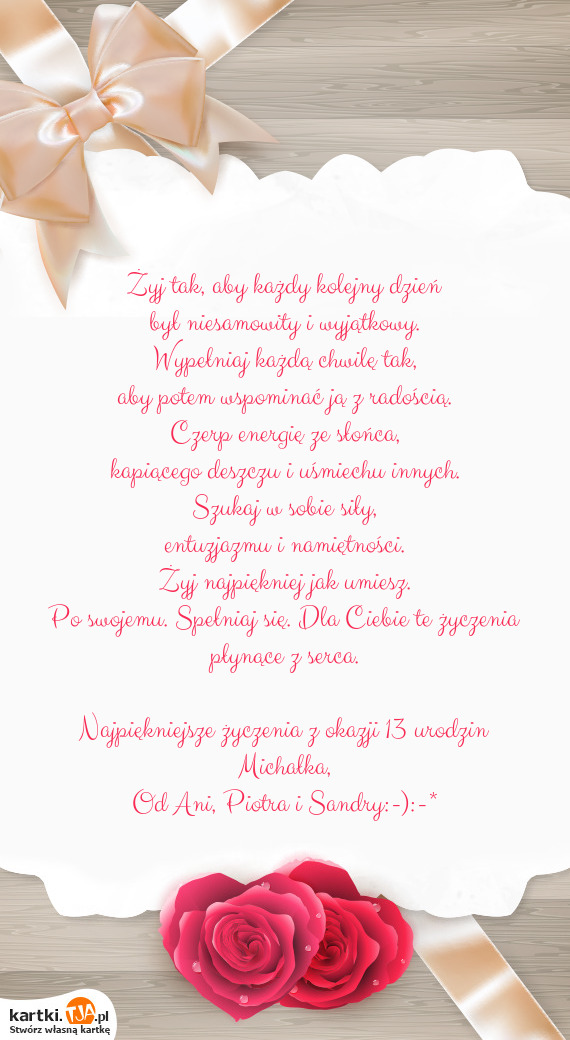 Żyj tak, aby każdy kolejny dzień
był niesamowity i wyjątkowy.
Wypełniaj każdą chwilę tak,
aby potem wspominać ją z radością.
Czerp energię ze słońca,
kapiącego deszczu i uśmiechu innych.
Szukaj w sobie siły,
entuzjazmu i namiętności.
Żyj najpiękniej jak umiesz.
Po swojemu. Spełniaj się. Dla Ciebie te życzenia
płynące z serca.
Najpiękniejsze życzenia z okazji 13 urodzin
Michałka,
Od Ani, Piotra i Sandry:-):-*
kartki.TJA.pl
Stwórz własną kartkę